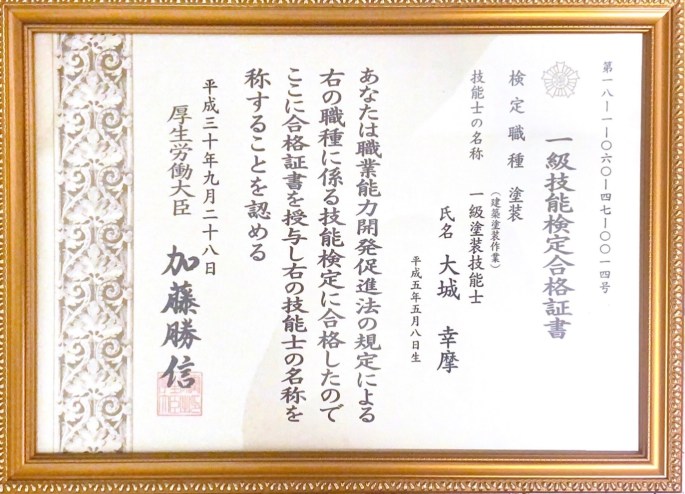 第一八ー一ー〇六〇ー四七ー〇〇一四号
一級技能検定合格証書
検定職種 塗装
(建築塗装作業)
技能士の名称 一級塗装技能士
氏名 大城 幸摩
平成五年五月八日生
あなたは職業能力開発促進法の規定による
右の職種に係る技能検定に合格したので
ここに合格証書を授与し右の技能士の名称を
称することを認める
平成三十年九月二十八日
厚生労働大臣 加藤勝信